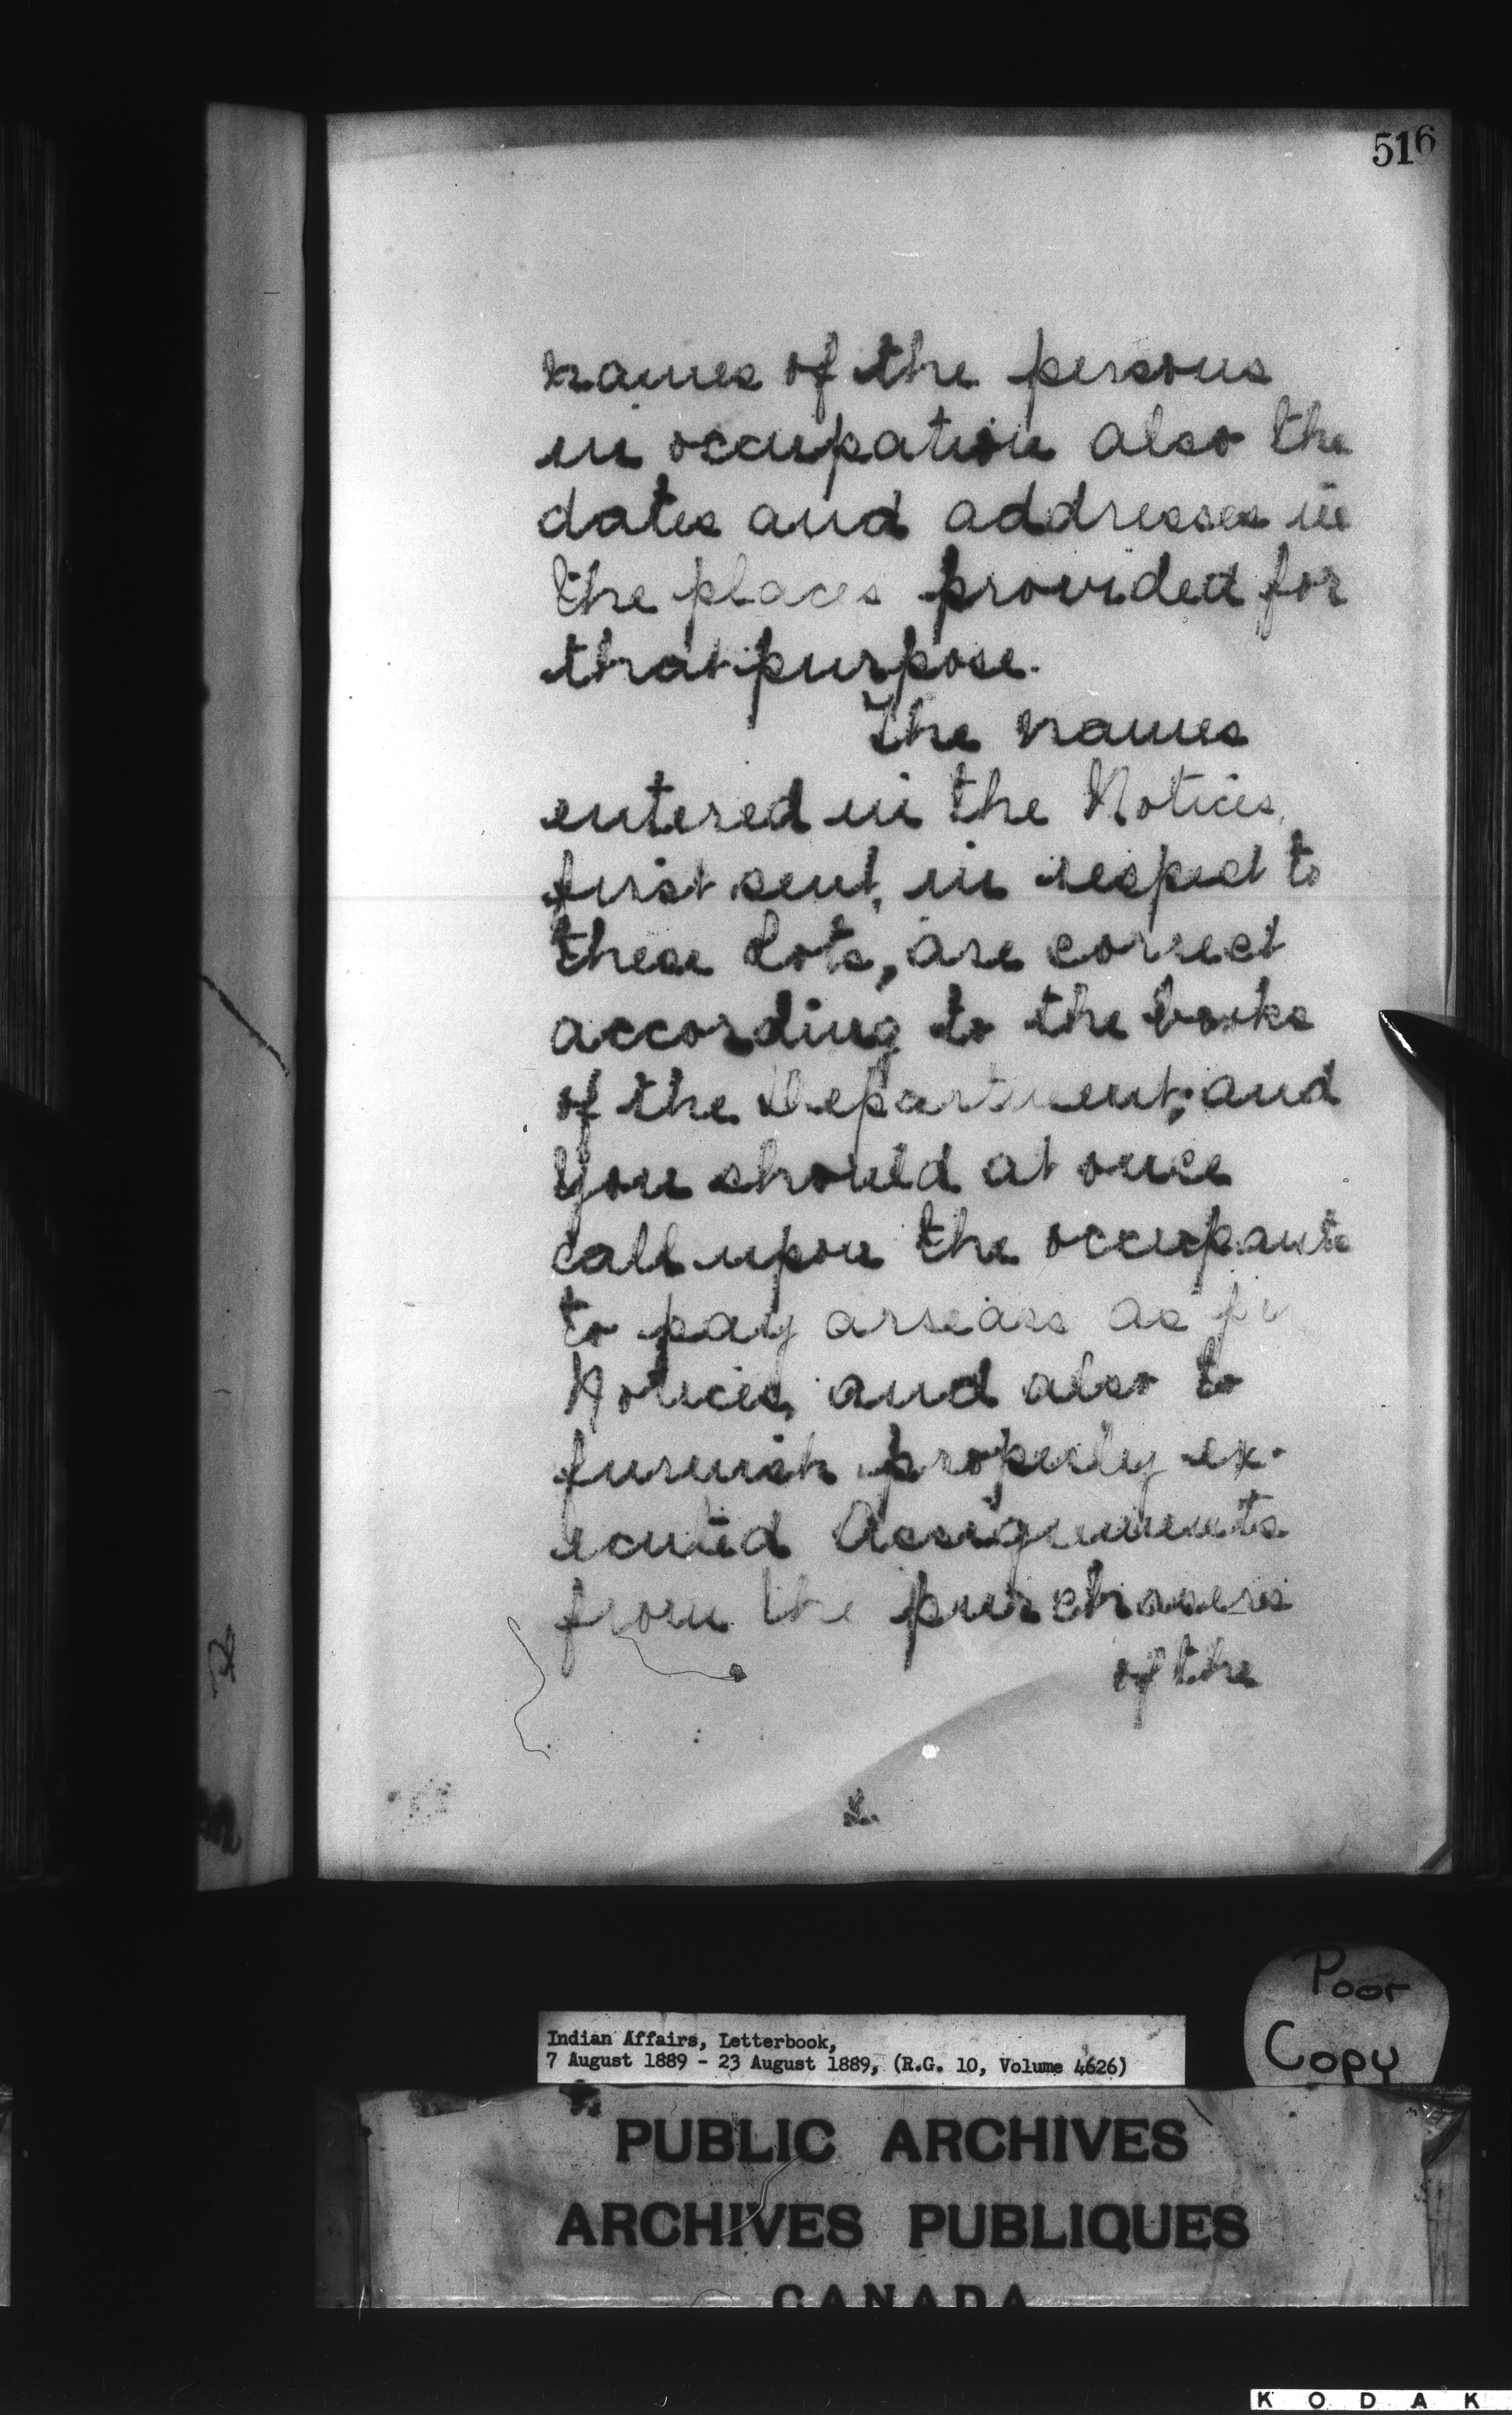 516
names of the persons
in occupation also the
dates and addresses in
the places provided for
that purpose.
The names
entered in the Notices,
first sent, in respect to
these Lots, are correct
according to the books
of the Department; and
you should at once
call upon the occupants
to pay arrears as
Notices, and also to
furnish properly ex-
ecuted Assignments
from the purchasers
of the
Poor
Copy
Indian Affairs, Letterbook,
7 August 1889 - 23 August 1889, (R.G. 10, Volume 4626)
PUBLIC ARCHIVES
ARCHIVES PUBLIQUES
CANADA
KODAK